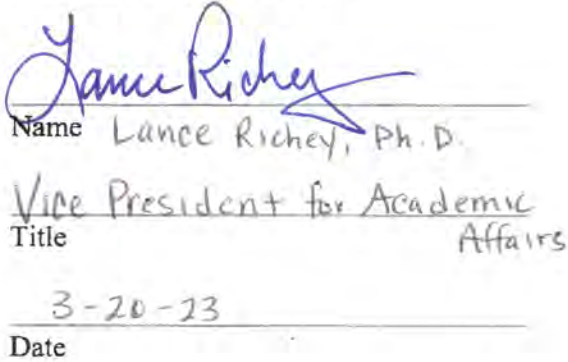 Lance Richey
Name Lance Richey, Ph.D.
Vice President for Academic
Title Affairs
3-20-23
Date